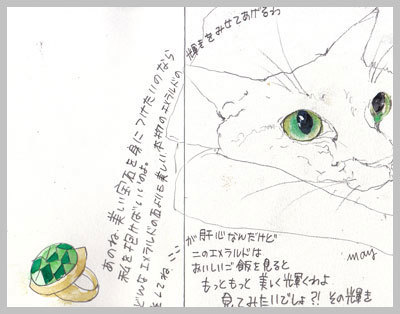 あのね 美しい宝石を身につけたいのなら
私を抱けばいいのよ。
どんなエメラルドの石よりも美しい本物のエメラルドの
輝きをみせてあげるわ
そしてね…
が肝心なんだけど
このエメラルドは
おいしいご飯を見ると
もっともっと 美しく輝くわよ
見てみたいでしょ?! その輝き
may